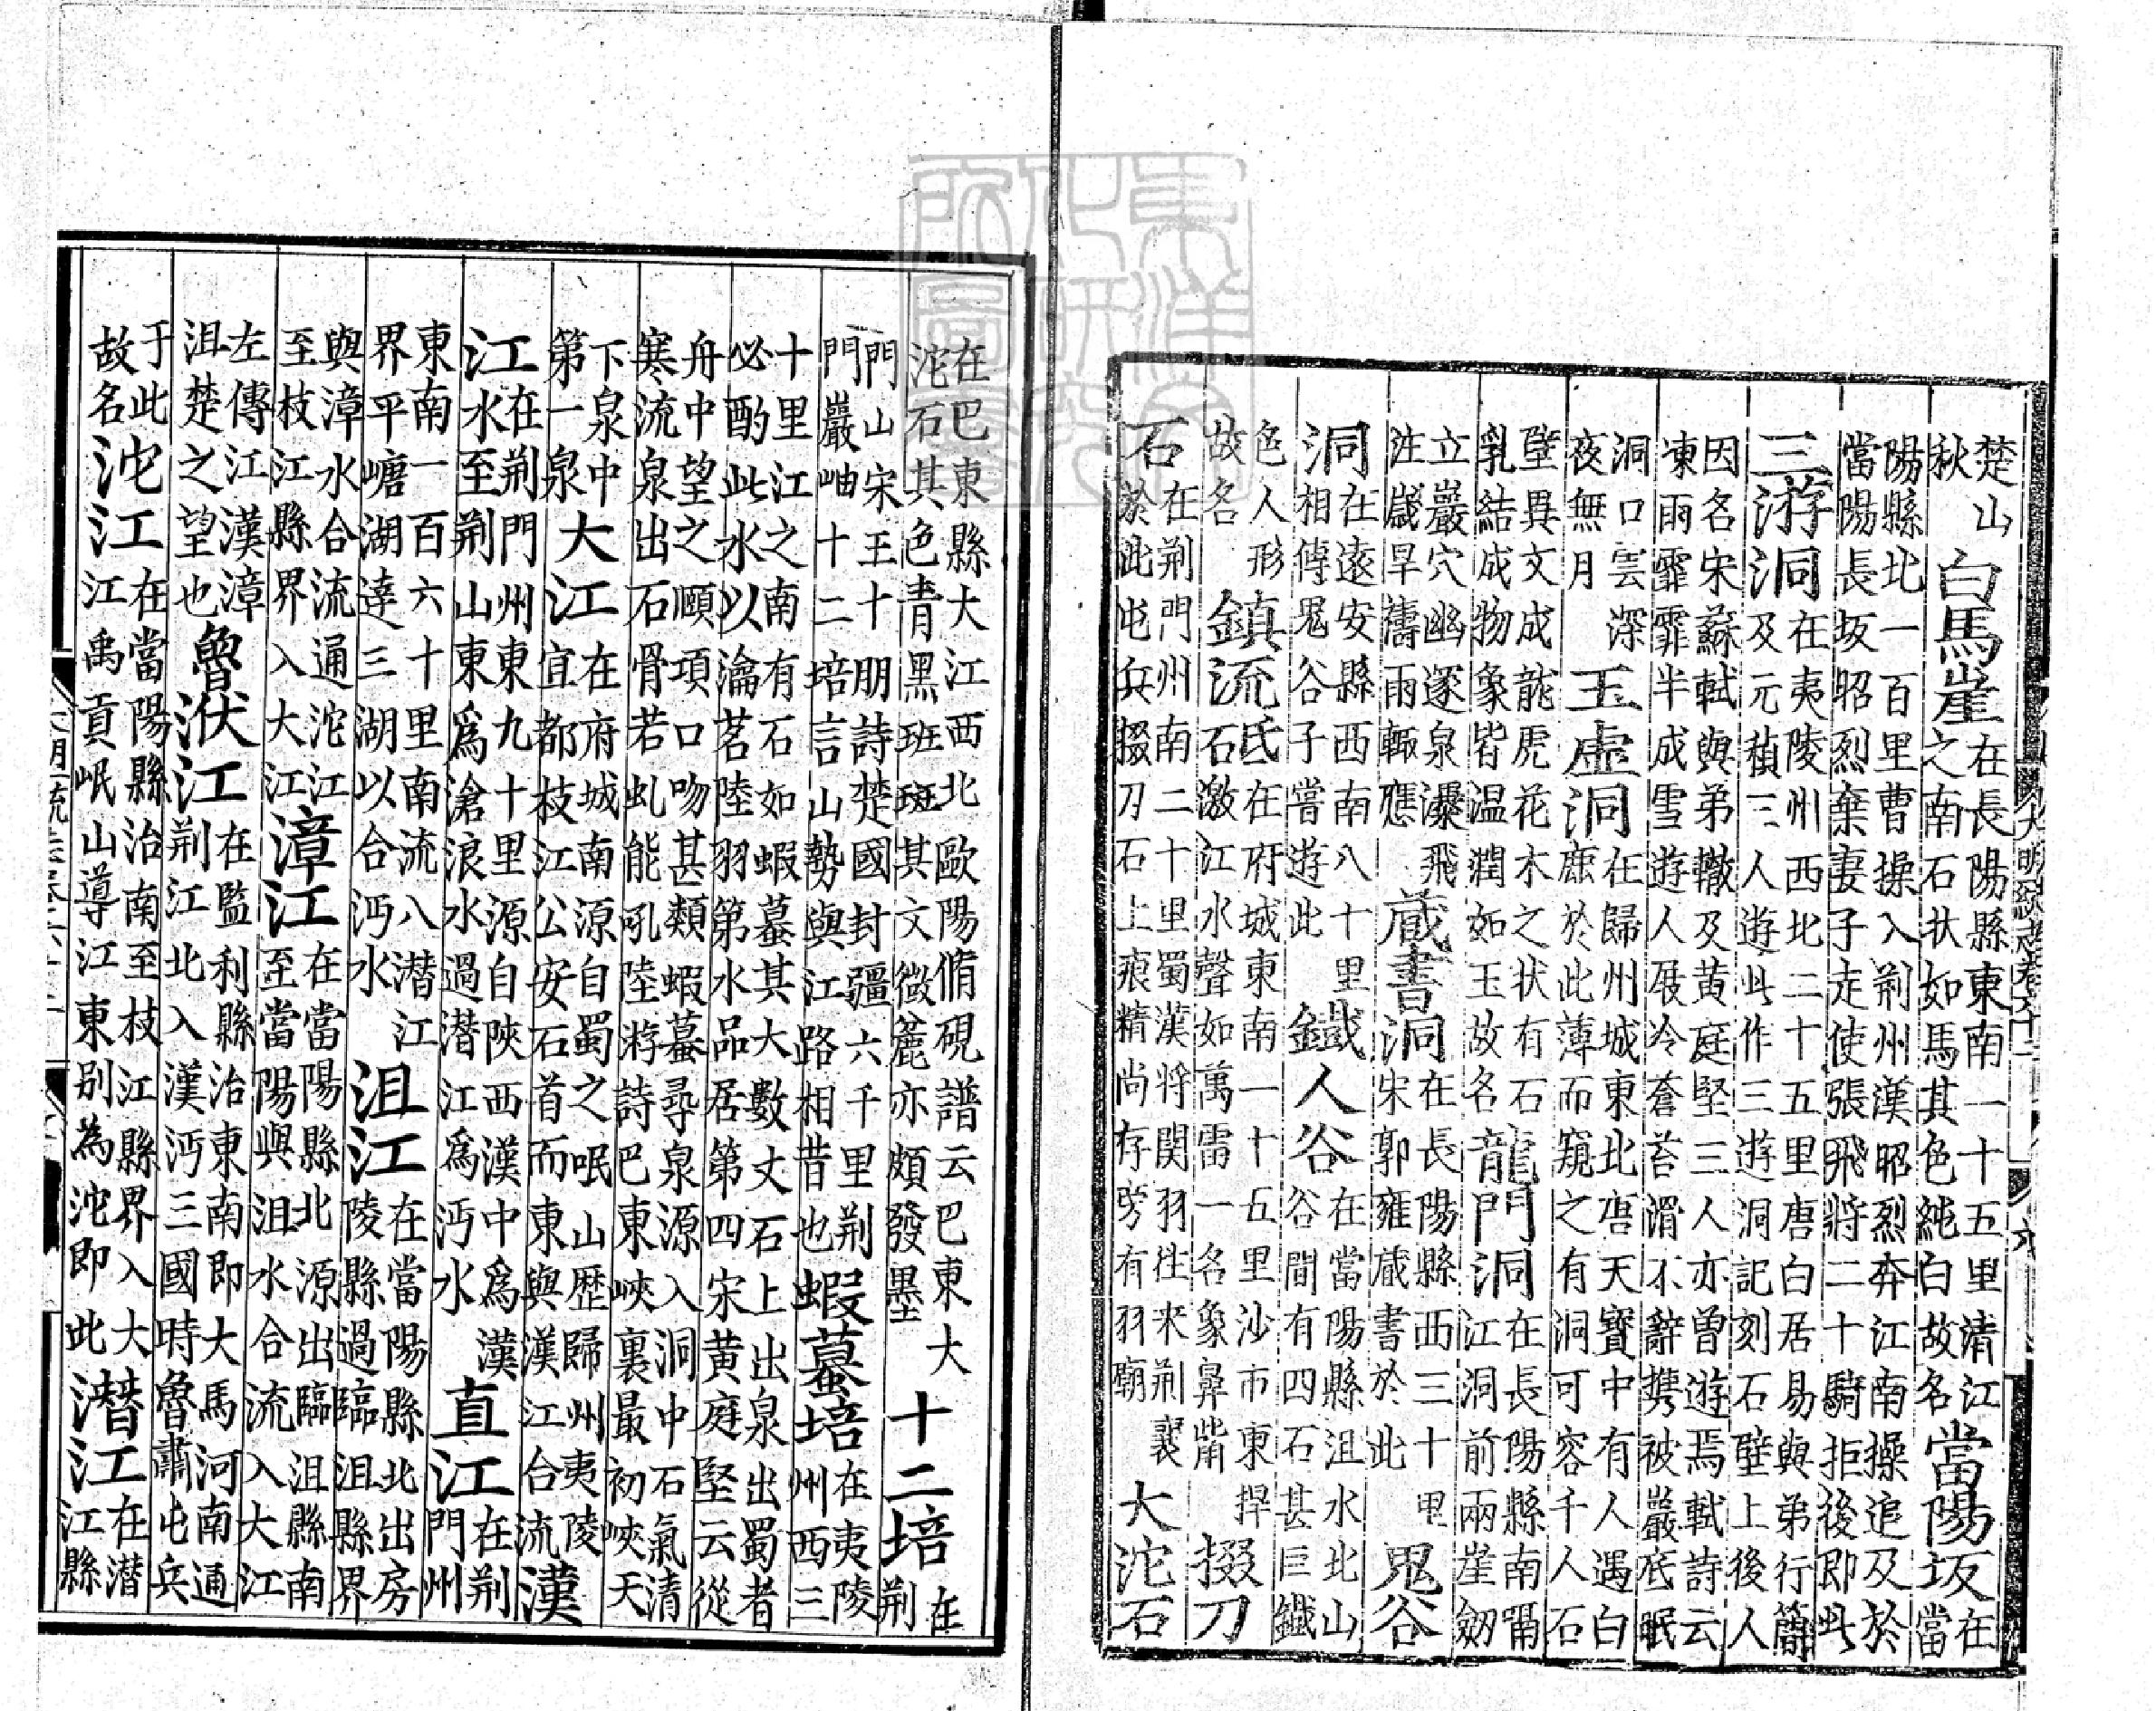 楚山秋白馬崖在長陽縣東南一十五里清江之南石狀如馬其色純白故名當陽坂在當
陽縣北一百里曹操入荆州漢昭烈奔江南操追及於當陽長坂昭烈棄妻子走使張飛將二十騎拒後即此
三游洞在夷陵州西北二十五里唐白居易與弟行簡及元稹三人遊此作三遊洞記刻石壁上後人
因名宋蘇軾與弟轍及黄庭堅三人亦曾遊焉軾詩云凍雨霏霏半成雪遊人屐冷蒼苔滑不辭携被巖底眠
洞口雲深夜無月玉虛洞在歸州城東北唐天寶中有人遇白鹿於此薄而窺之有洞可容千人石
壁異文成龍虎花木之状有石乳結成物象皆温潤如玉故名龍門洞在長陽縣南臨江洞前兩崖劒
立巖穴幽邃泉瀑飛注歲旱禱雨輒應蔵書洞在長陽縣西三十里宋郭雍蔵書於此鬼谷
洞在遠安縣西南八十里相傳鬼谷子嘗遊此鐵人谷在當陽縣沮水北山谷間有四石甚巨鐵
色人形故名鎮流砥在府城東南一十五里沙市東捍激江水聲如萬雷一名象鼻觜掇刀
石在荆門州南二十里蜀漢將関羽往来荆襄於此屯兵掇刀石上痕精尚存旁有羽廟大沱石
在巴東縣大江西北歐陽脩硯譜云巴東大沱石其色青黑班斑其文微麄亦頗發墨十二培在荆
門山宋王十朋詩楚國封疆六千里荆門巖岫十二培言山勢與江路相昔也蝦蟇培在夷陵州西三
十里江之南有石如蝦蟇其大數丈石上出泉出蜀者必酌此水以瀹茗陸羽第水品居第四宋黄庭堅云從
舟中望之頤項口吻甚類蝦蟇尋泉源入洞中石氣清寒流泉出石骨若虬能吼陸游詩巴東峽裏最初峽天
下泉中第一泉大江在府城南源自蜀之岷山歷歸州夷陵宜都枝江公安石首而東與漢江合流漢
江在荆門州東九十里源自陝西漢中爲漢水至荆山東爲滄浪水過潛江爲沔水直江在荆門州
東南一百六十里南流八潛江界平塘湖達三湖以合沔水沮江在當陽縣北出房陵縣過臨沮縣界
與漳水合流通沱江至枝江縣界入大江漳江在當陽縣北源出臨沮縣南至當陽與沮水合流入大江
左傳江漢漳沮楚之望也魯洑江在監利縣治東南即大馬河南通荆江北入漢沔三國時魯肅屯兵
于此故名沱江在當陽縣治南至枝江縣界入大江禹貢岷山導江東別為沱即此潛江在潛江縣